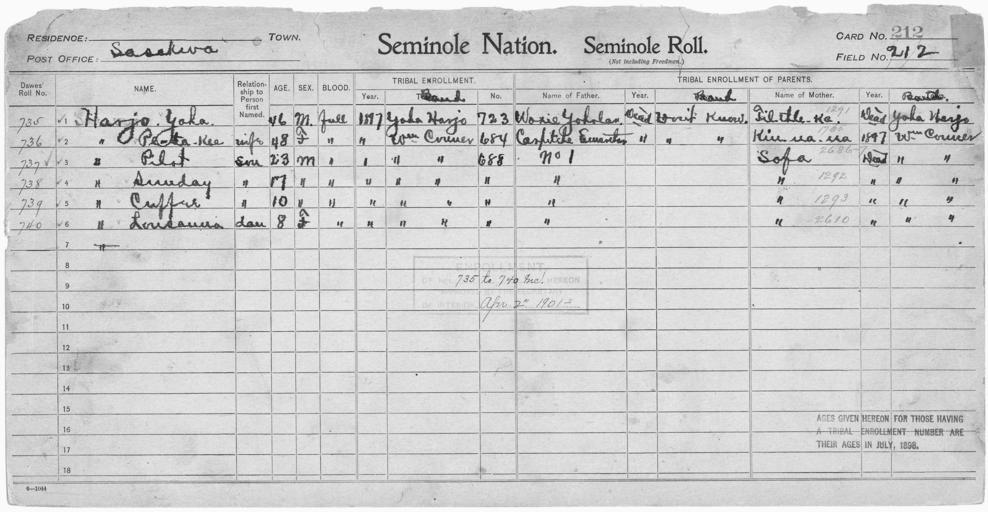 RESIDENCE: TOWN.
POST OFFICE: Sasakwa
Seminole Nation. Seminole Roll.
(Not including Freedmen.)
CARD NO. 212
FIELD NO. 212
Dawes' Roll No. NAME. Relationship to Person first Named. AGE. SEX. BLOOD. TRIBAL ENROLLMENT. TRIBAL ENROLLMENT OF PARENTS.
Year. Band No. Name of Father. Year. Band Name of Mother. Year. Band.
735 1 Harjo, Yoha 46 M full 1897 Yoha Harjo 723 Woxie Yoholar Dead Don't Know Dead Yoha Harjo
736 2 " wife 48 F " " Wm Conner 684 " " " 1897 Wm Conner
737 3 " Pilot son 23 M " " " " 688 No 1 Sofa Dead " "
738 4 " Sunday " 17 " " " " " " " " 1292 " " "
739 5 " Cuffee " 10 " " " " " " " " 1293 " " "
740 6 " Lousanna dau 8 F " " " " " " " 2610 " " "
7 "
8
ENROLLMENT
9
735 to 740 Inc. HEREON
10
OF INTERIOR Apr. 2" 1901
11
12
13
14
15
16
17
18
AGES GIVEN HEREON FOR THOSE HAVING
A TRIBAL ENROLLMENT NUMBER ARE
THEIR AGES IN JULY, 1898.
6—1044